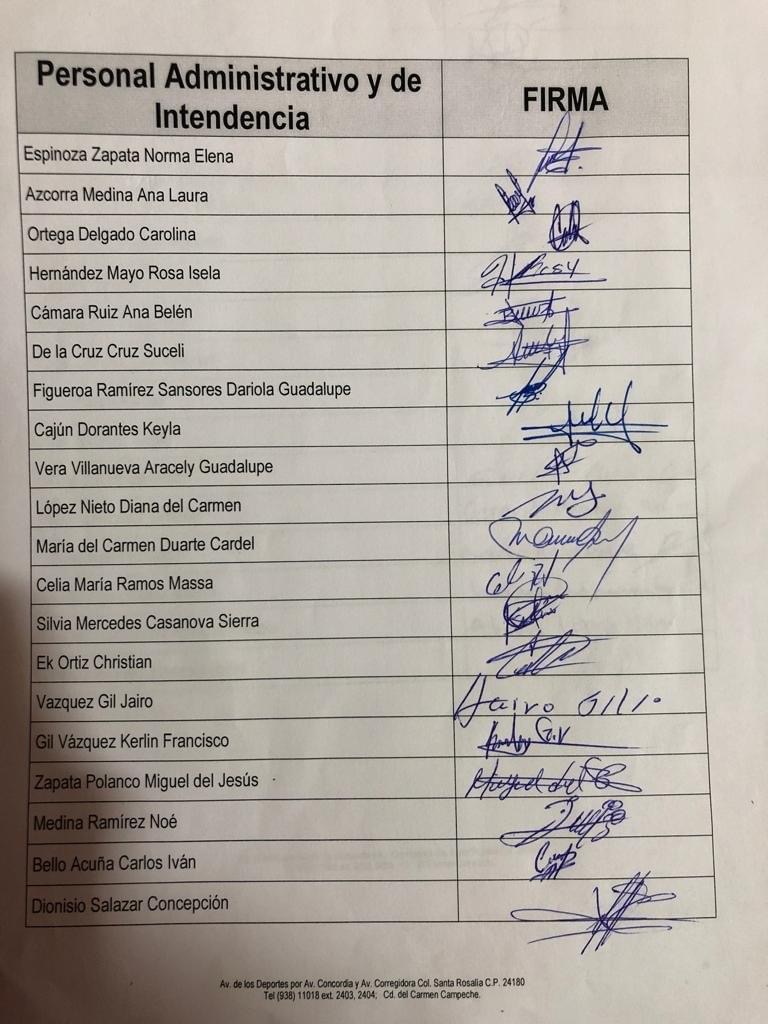 Personal Administrativo y de
Intendencia
FIRMA
Espinoza Zapata Norma Elena
Azcorra Medina Ana Laura
Ortega Delgado Carolina
Hernández Mayo Rosa Isela
Cámara Ruiz Ana Belén
De la Cruz Cruz Suceli
Figueroa Ramírez Sansores Dariola Guadalupe
Cajún Dorantes Keyla
Vera Villanueva Aracely Guadalupe
López Nieto Diana del Carmen
María del Carmen Duarte Cardel
Celia María Ramos Massa
Silvia Mercedes Casanova Sierra
Ek Ortiz Christian
Vazquez Gil Jairo Jairo Gil
Gil Vázquez Kerlin Francisco
Zapata Polanco Miguel del Jesús Miguel del
Medina Ramírez Noé
Bello Acuña Carlos Iván
Dionisio Salazar Concepción
Av. de los Deportes por Av. Concordia y Av. Corregidora Col. Santa Rosalia C.P. 24180
Tel (938) 11018 ext. 2403, 2404; Cd. del Carmen Campeche.